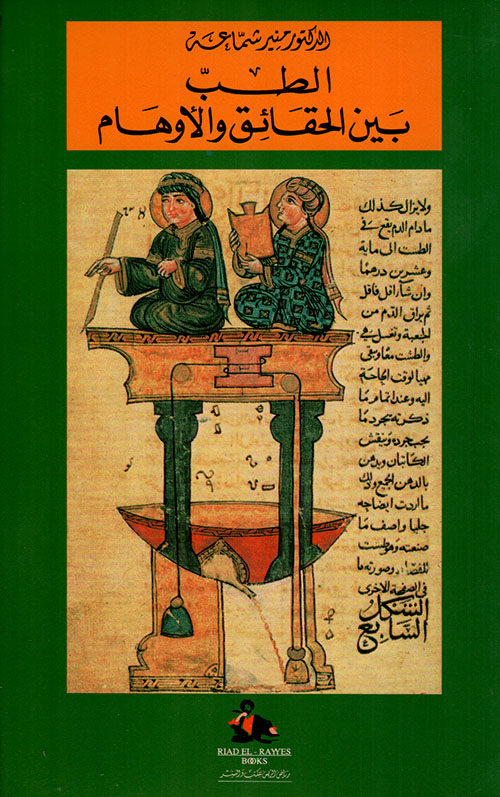 الدكتور منير شمّاعة
الطبّ
بَين الحقَائِق والأوهَام
ولا يزال كذلك
مادام الدم يقع في
الطست الى ماية
وعشرين درهمًا
وان شا اقل فاقل
ثم يراق الدم من
الجعبة وتغسل هي
والطست معا وبقى
مهيا لوقت الحاجة
اليه وعند اتمام ما
ذكرته تجرد ما
يجب جرده وينقش
الكاتبان ويدهن
بالدهن الجمع وذلك
ما اردت ايضاحه
جليا واصف ما
صنعته وهو طست
للفصد وصورته ما
في الصفحة الاخرى
الشكل
السابع
RIAD EL-RAYYES
BOOKS
رياض الريس للكتب والنشر